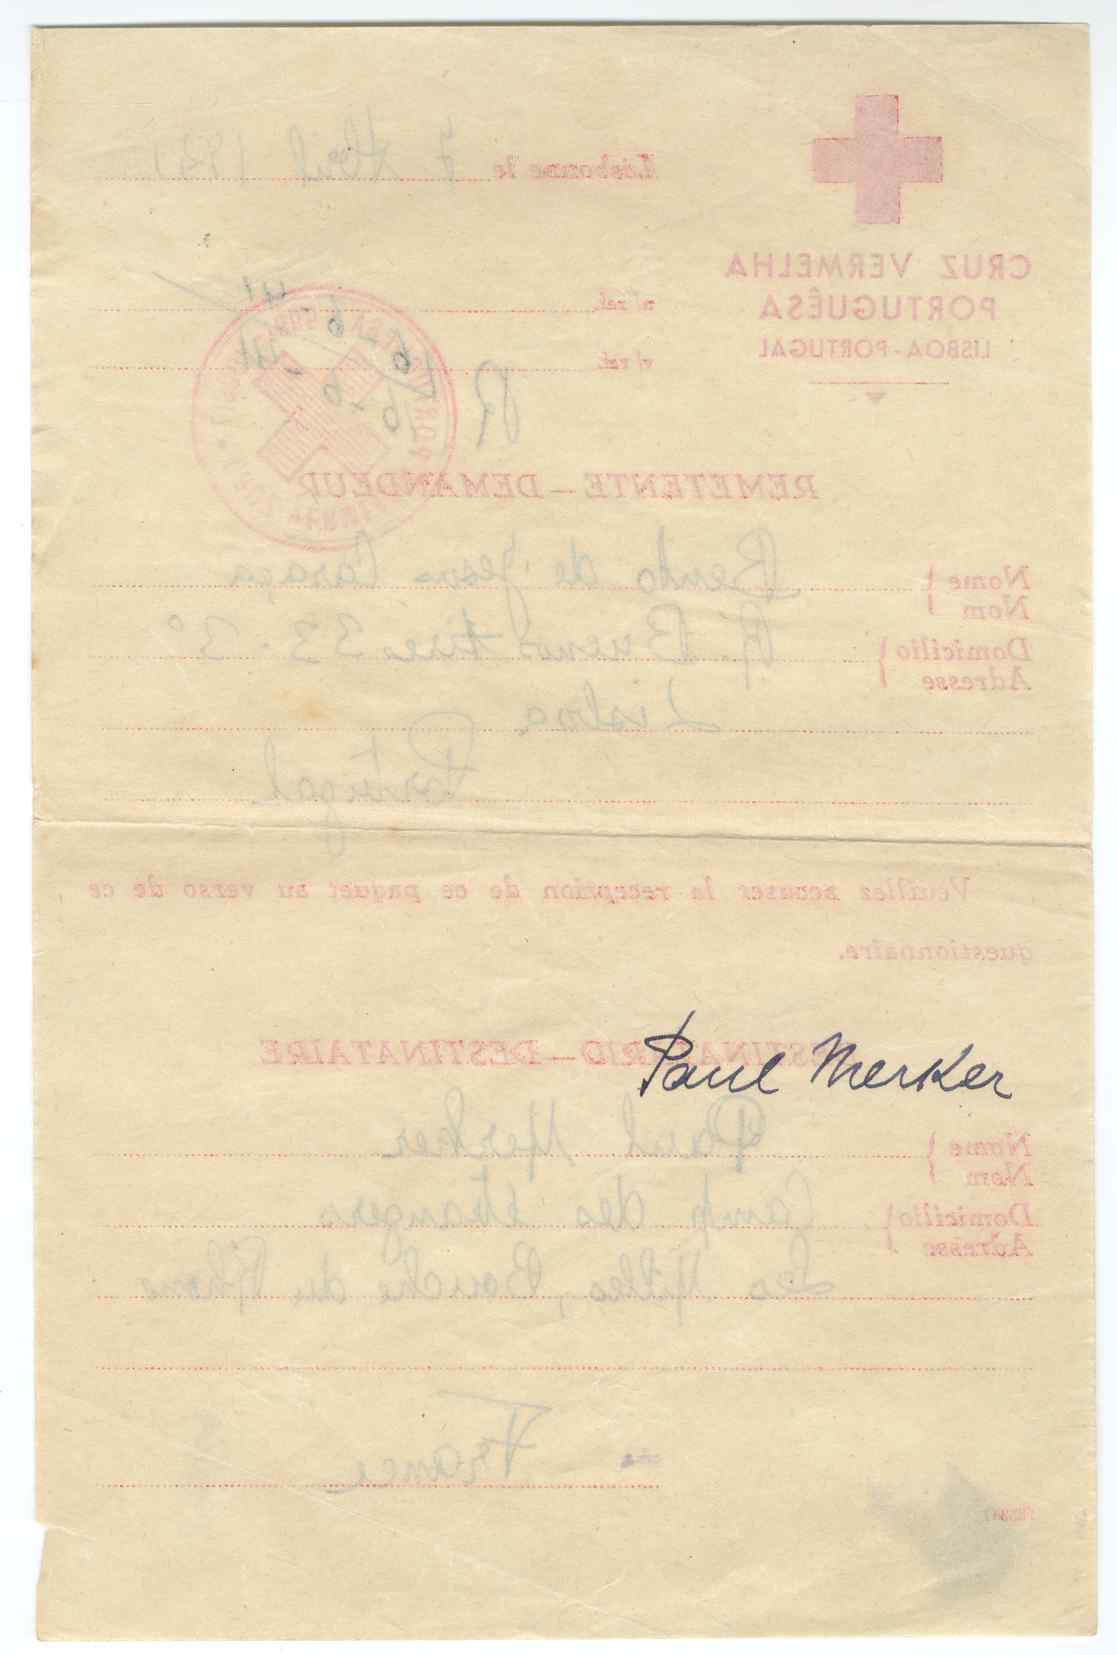 Lisbonne le 7 Abril 1941
CRUZ VERMELHA
PORTUGUÊSA
LISBOA-PORTUGAL
n/ ref.
v/ ref.
R
REMETENTE—DEMANDEUR
Nome
Nom
Bento de Jesus Caraça
Domicilio
Adresse
R. Buenos Aires 33-3º
Lisboa
Portugal
Veuillez accuser la reception de ce paquet au verso de ce
questionnaire.
DESTINATARIO—DESTINATAIRE
Paul Merker
Nome
Nom
Paul Merker
Domicilio
Adresse
Camp des étrangers
Les Milles, Bouche du Rhone
France